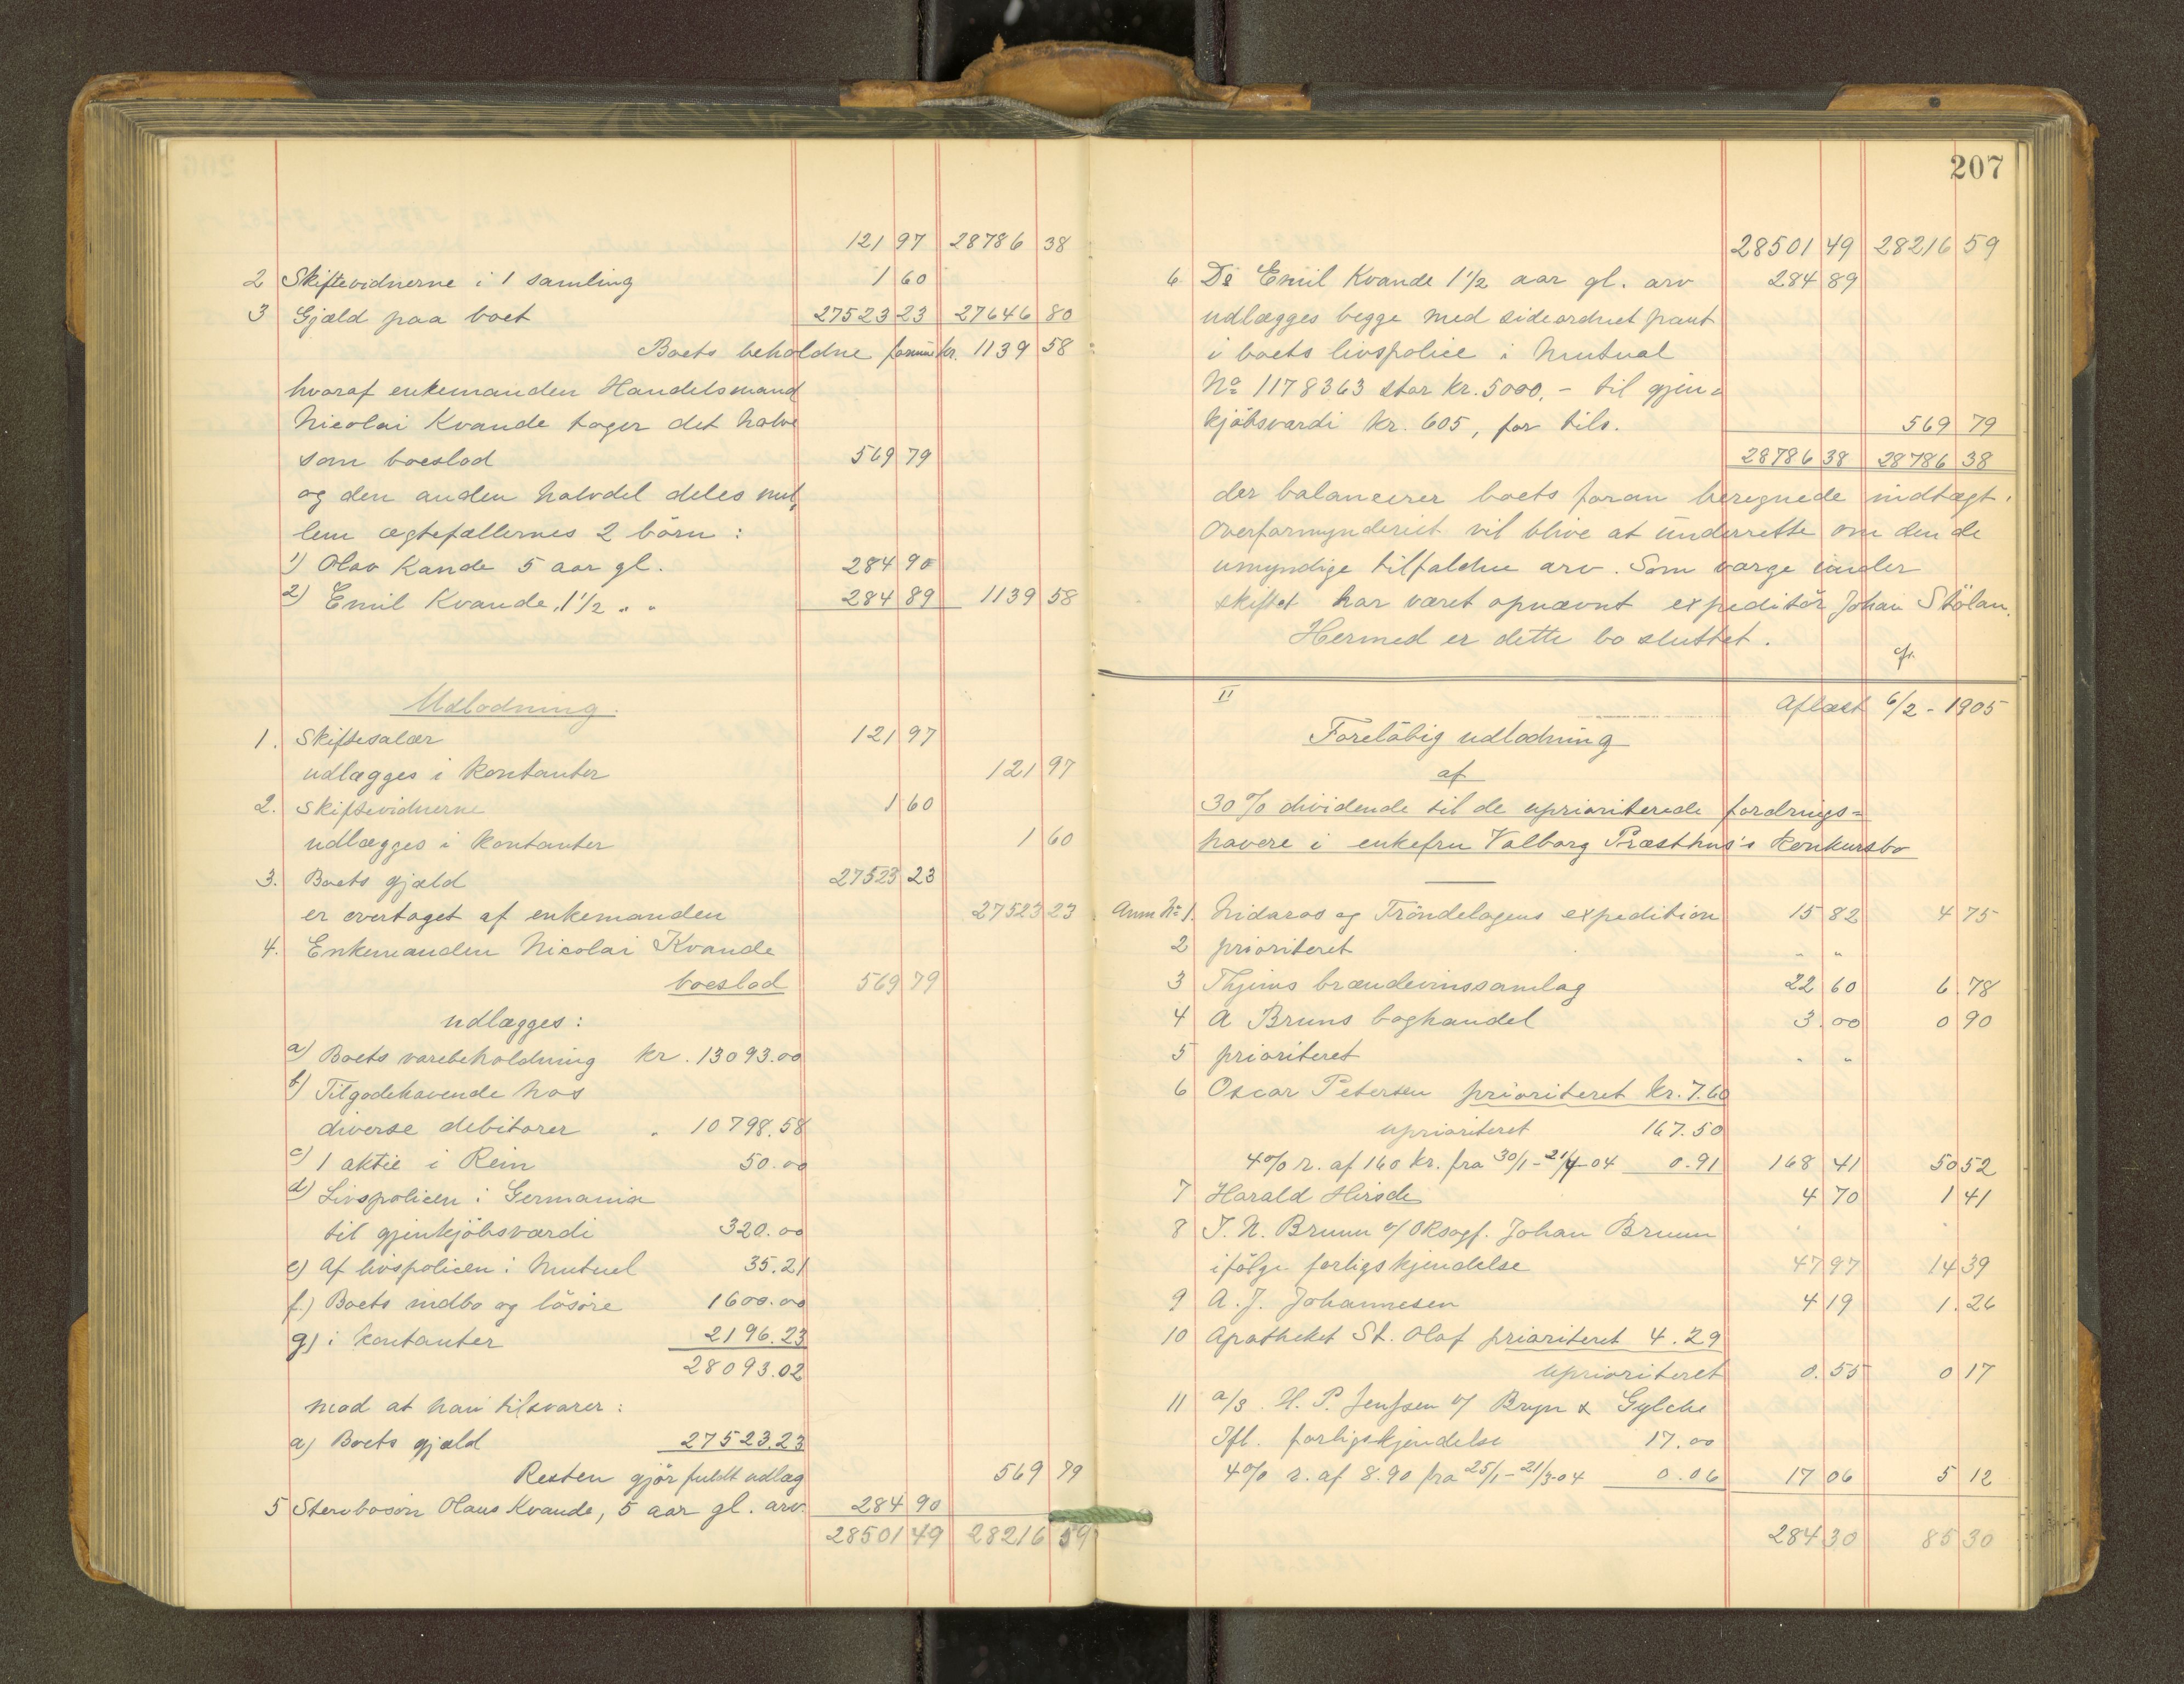 121 97 28786 38
2 Skiftevidnerne i 1 samling 1 60
3 Gjæld paa boet 27523 23 27646 80
Boets beholdne formue kr. 1139 58
hvoraf enkemanden Handelsmand
Nicolai Kvande tager det halve
som boeslod 569 79
og den anden halvdel deles mel,
lem ægtefællernes 2 börn :
1) Olav Kande 5 aar gl. 284 90
2) Emil Kvande, 1 1/2 " " 284 89 1139 58
Udlodning.
1. Skiftesalær 121 97
udlægges i kontanter 121 97
2. Skiftevidnerne 1 60
udlægges i kontanter 1 60
3. Boets gjæld 27523 23
er overtaget af enkemanden 27523 23
4. Enkemanden Nicolai Kvande
boeslod 569 79
udlægges :
a) Boets varebeholdning kr. 13093.00
b) Tilgodehavende hos
diverse debitorer " 10798.58
c) 1 aktie i Rein 50.00
d) Livspolicen i Germania
til gjenkjöbsværdi 320.00
e) Af livspolicen i Mutuel 35.21
f.) Boets indbo og lösöre 1600.00
g) i kontanter 2196.23
28093.02
mod at han tilsvarer :
a) Boets gjæld 27523.23
Resten gjör fuldt udlæg 569 79
5 Stervbosön Olaus Kvande, 5 aar gl. arv. 284 90
28501 49 28216 59
207
28501 49 28216 59
6 Do Emil Kvande 1 1/2 aar gl. arv 284 89
udlægges begge med sideordnet pant
i boets livspolice i Mutual
No 1178363 stor kr. 5000,- til gjen=
kjöbsværdi kr. 605, for tils. 569 79
28786 38 28786 38
der balancerer boets foran beregnede indtægt.
Overformynderiet vil blive at underrette om den de
umyndige tilfaldne arv. Som værge under
skiftet har været opnævnt expeditör Johan Stölan.
Hermed er dette bo sluttet.
II Aflæst 6/2 - 1905
Foreløbig udlodning
af
30 % dividende til de uprioriterede fordrings=
havere i enkefru Valborg Præsthus's konkursbo
Anm No 1. Nidaros og Tröndelagens expedition 15 82 4 75
2 prioriteret " "
3 Thjems brændevinssamlag 22 60 6.78
4 A Bruns boghandel 3.00 0 90
5 prioriteret " "
6 Oscar Petersen prioriteret kr. 7.60
uprioriteret 167.50
4 % r. af 160 kr. fra 30/1 - 21/4 04 0.91 168 41 50 52
7 Harald Hirsch 4 70 1 41
8 J. N. Bruun v/ Oksagf. Johan Bruun
ifölge forligskjendelse 47 97 14 39
9 A. J. Johannesen 4 19 1.26
10 Apotheket St. Olaf prioriteret 4.29
uprioriteret 0.55 0 17
11 a/s H. P. Jenssen v/ Bryn & Gylche
Ifl. forligskjendelse 17.00
4 % r. af 8.90 fra 25/1 - 21/3-04 0.06 17 06 5 12
284 30 85 30